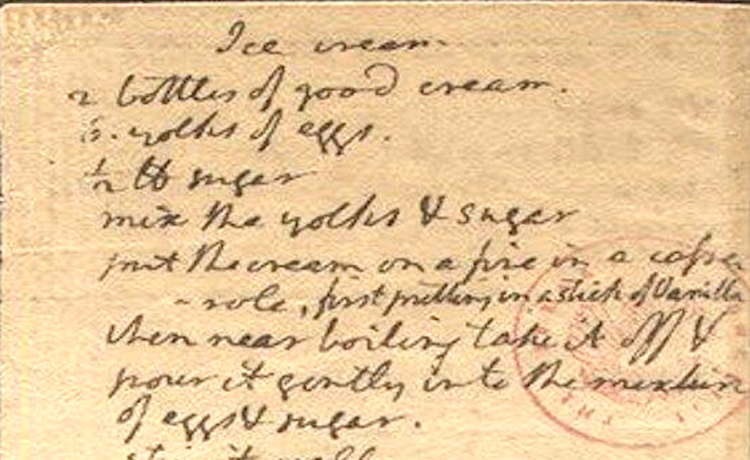 Ice cream.
2 bottles of good cream.
6. yolks of eggs.
½ ℔ sugar
mix the yolks & sugar
put the cream on a fire in a casse
- role, first putting in a stick of Vanilla
when near boiling take it off &
pour it gently into the mixture
of eggs & sugar.
stir it well